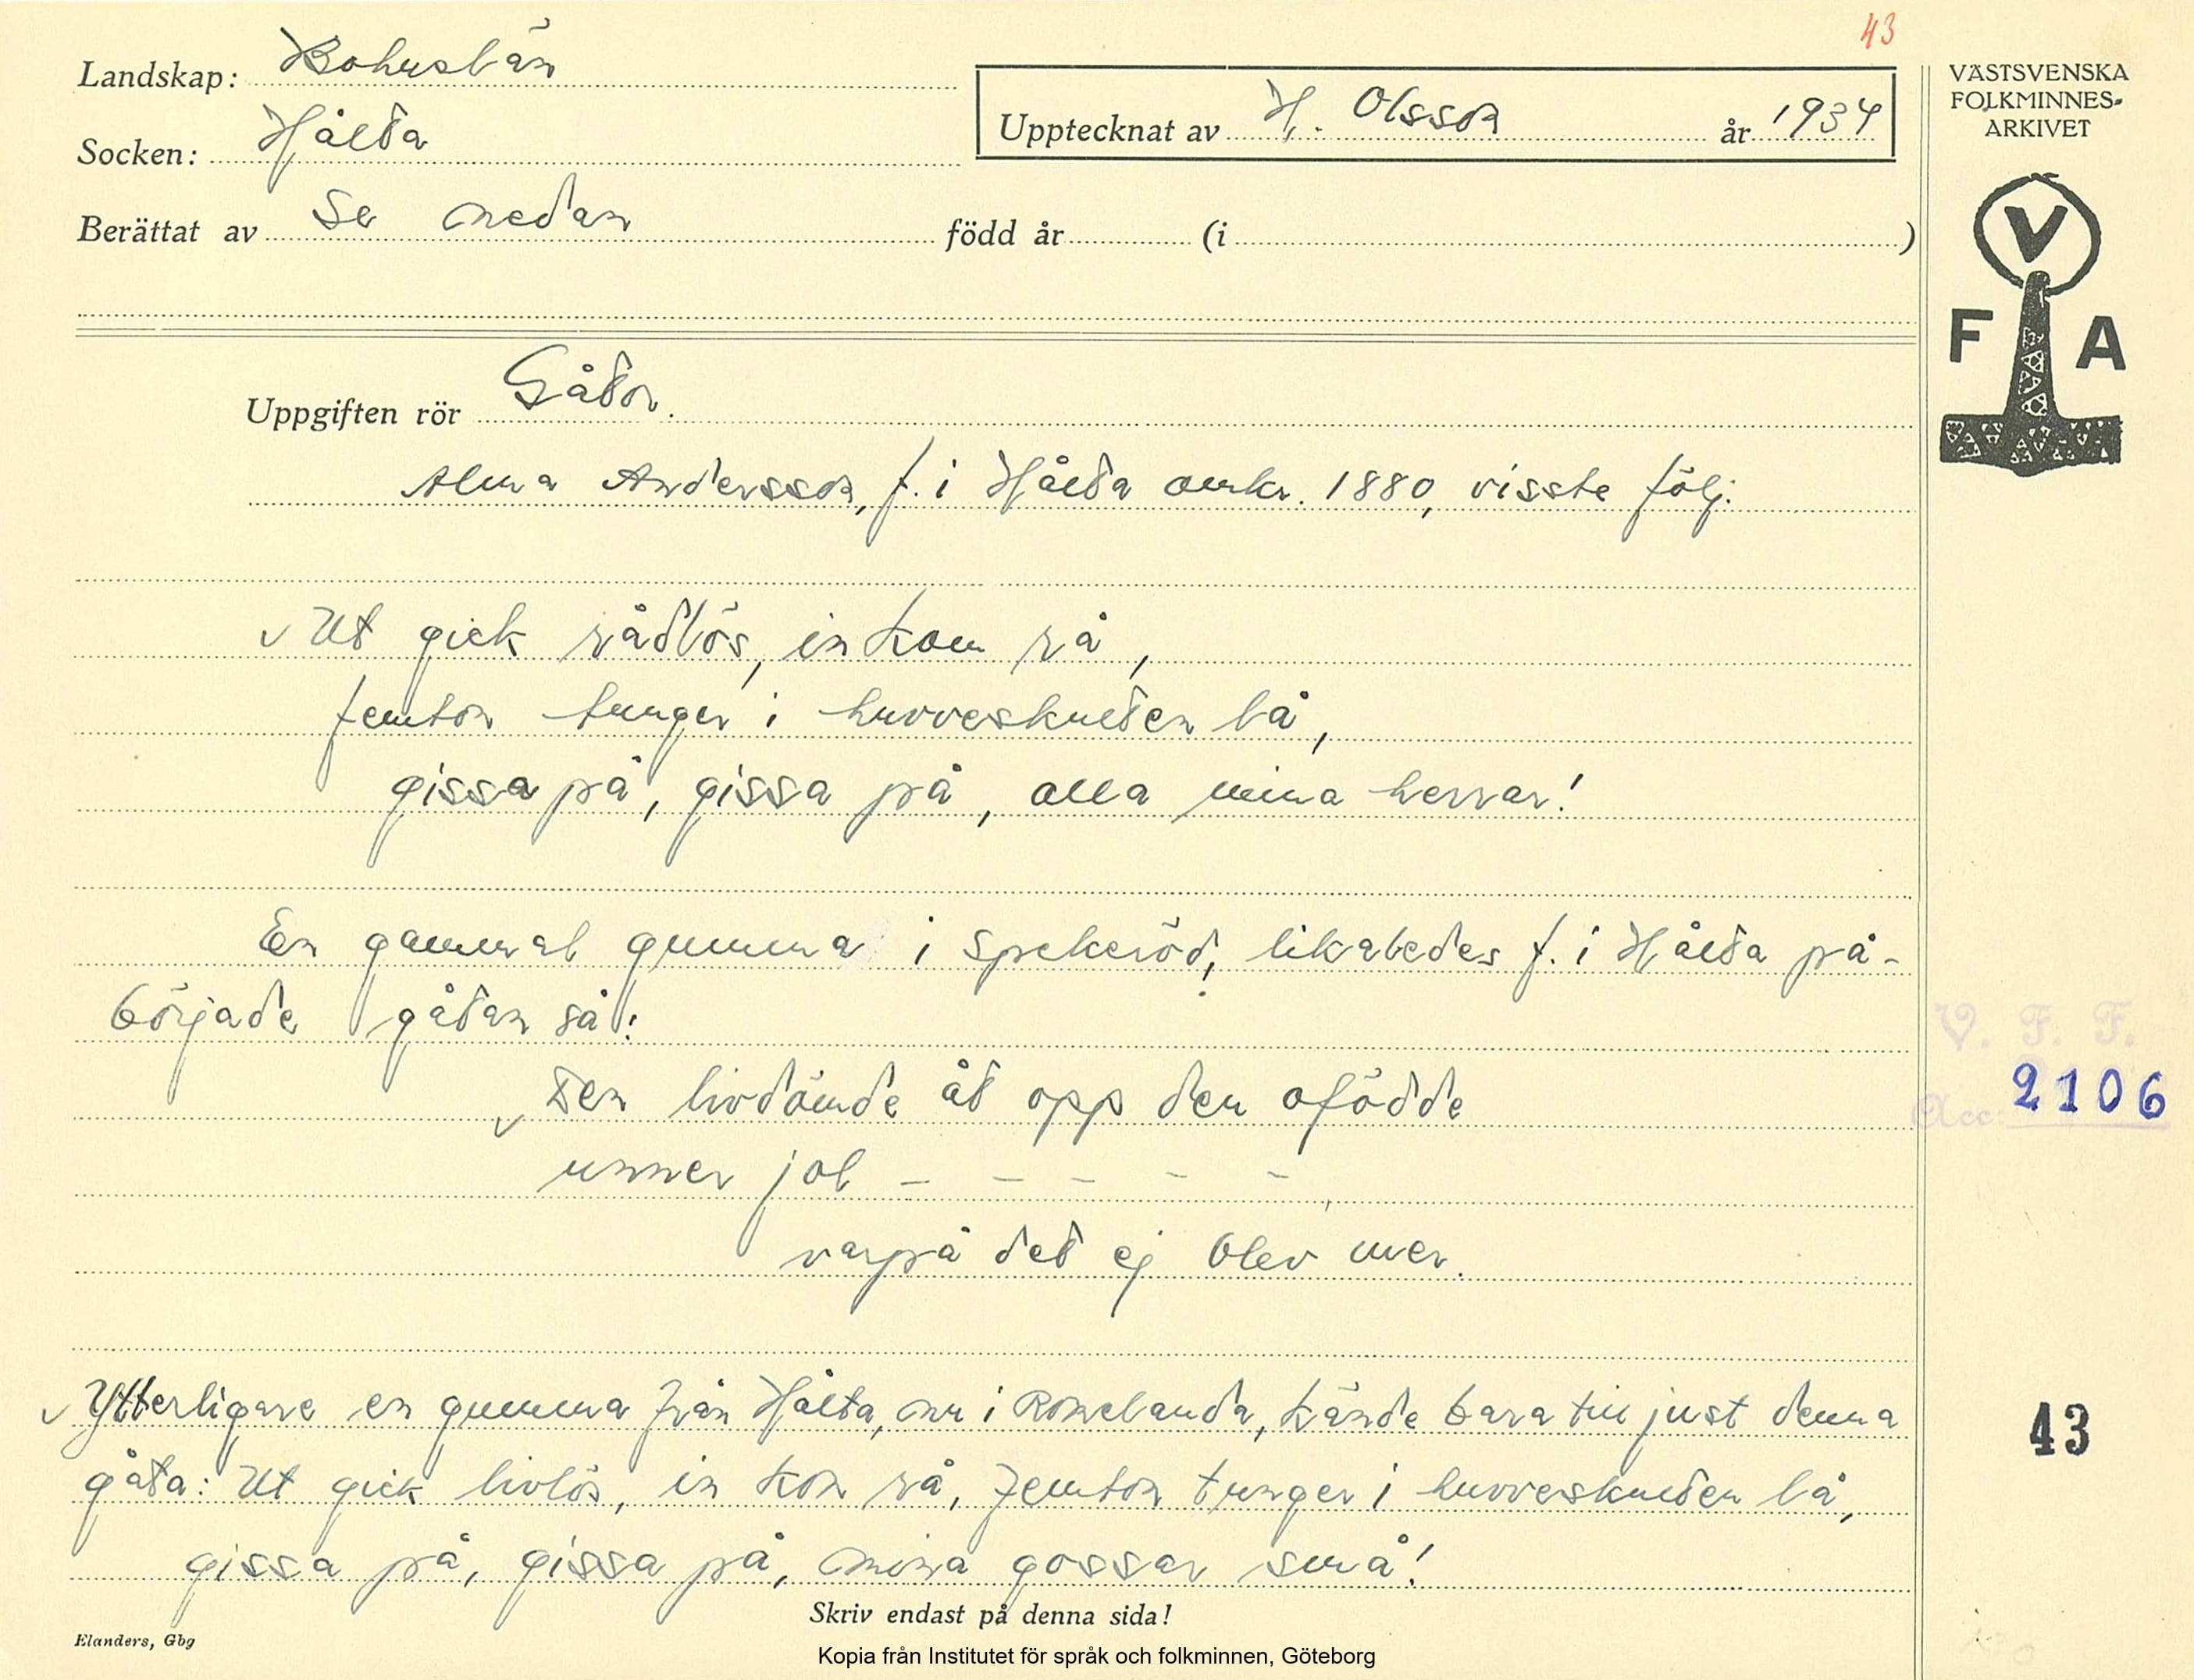 43
Landskap: Bohuslän
Socken: Hålta
Upptecknat av H. Olsson år 1934
Berättat av Se nedan född år (i )
VÄSTSVENSKA
FOLKMINNES-
ARKIVET
V
F A
Uppgiften rör Gåtor.
Alma Andersson, f. i Hålta omkr. 1880, visste följ:
Ut gick rådlös, in kom rå,
femton tunger i huvveskulten lå,
gissa på, gissa på, alla mina herrar!
En gammal gumma i Spekeröd, likaledes f. i Hålta på-
började gåtan så:
Den livdömde åt opp den ofödde
unner jol – – – – –,
varpå det ej blev mer.
V. F. F.
Acc: 2106
Ytterligare en gumma från Hålta, nu i Romelanda, kände bara till just denna
gåta: Ut gick livlös, in kom rå, femton tunger i huvveskulten lå,
gissa på, gissa på, mina gossar små!
43
Skriv endast på denna sida!
Elanders, Gbg
Kopia från Institutet för språk och folkminnen, Göteborg